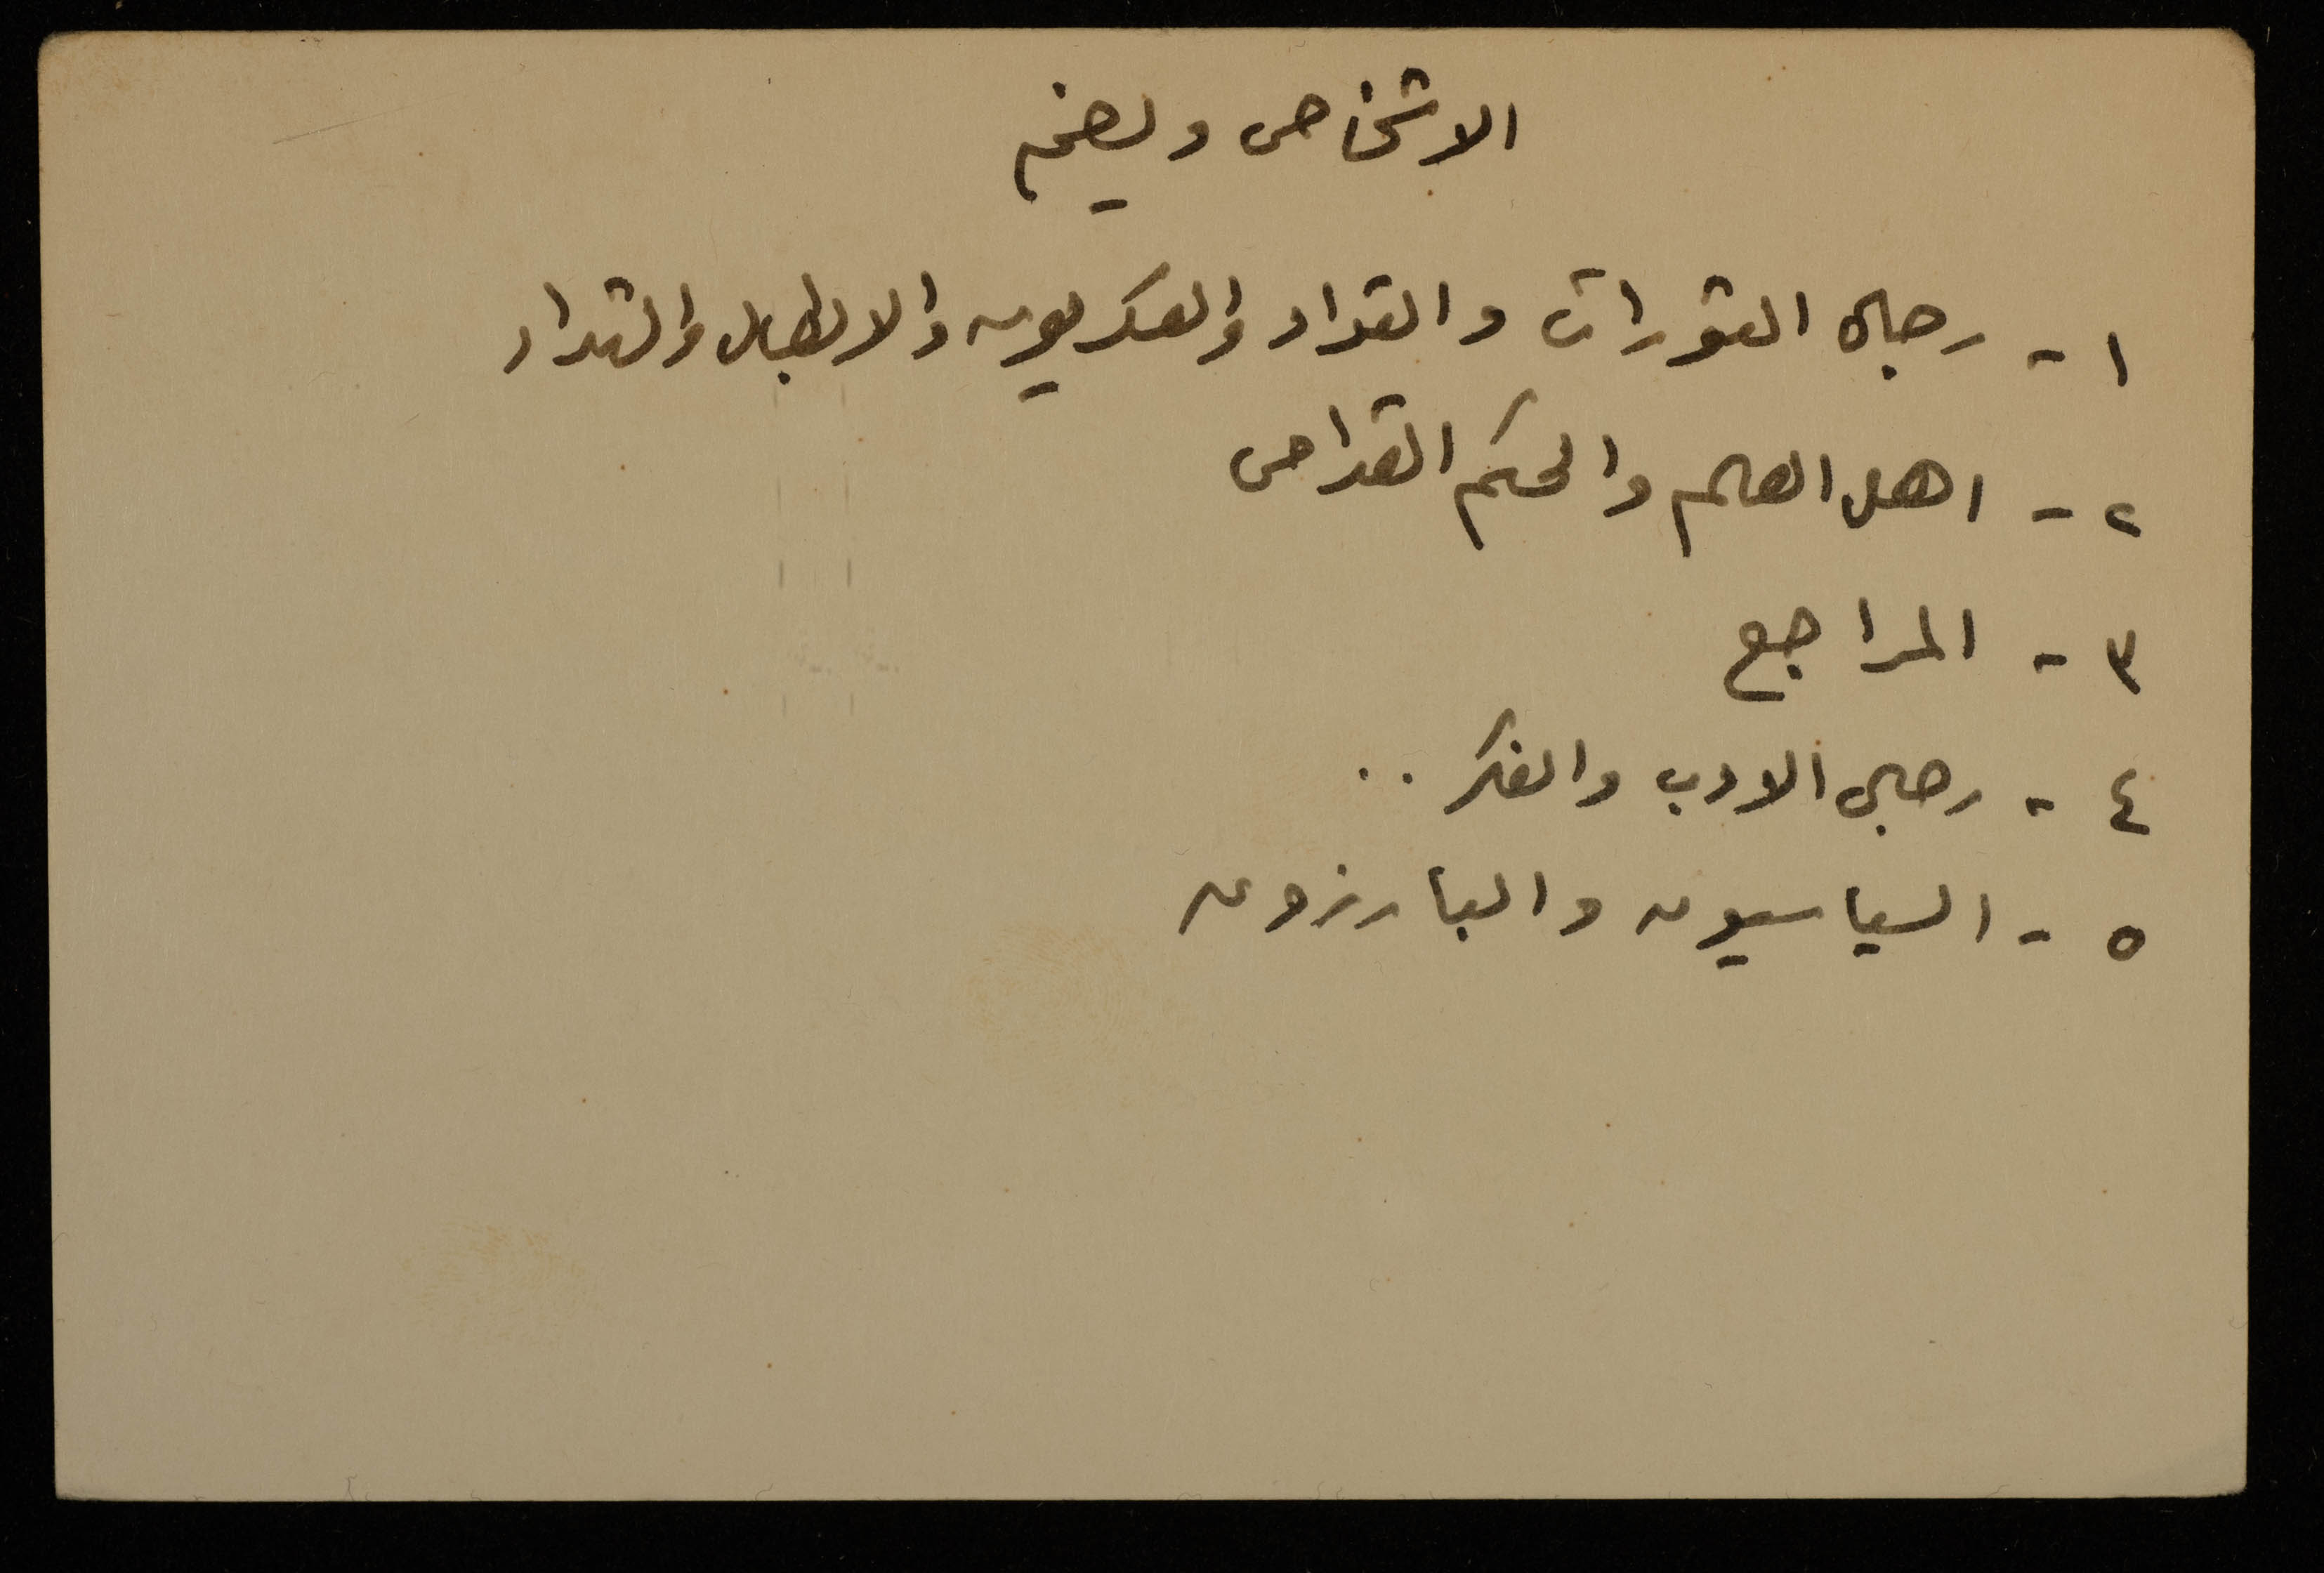 الاشخاص ويضم
١ - رجال الثورات والقواد والعسكريون والابطال والشهداء
٢ - اهل العلم والحكم القدامى
٣ - المراجع
٤ - رجال الادب والفكر ..
٥ - السياسيون والبارزون